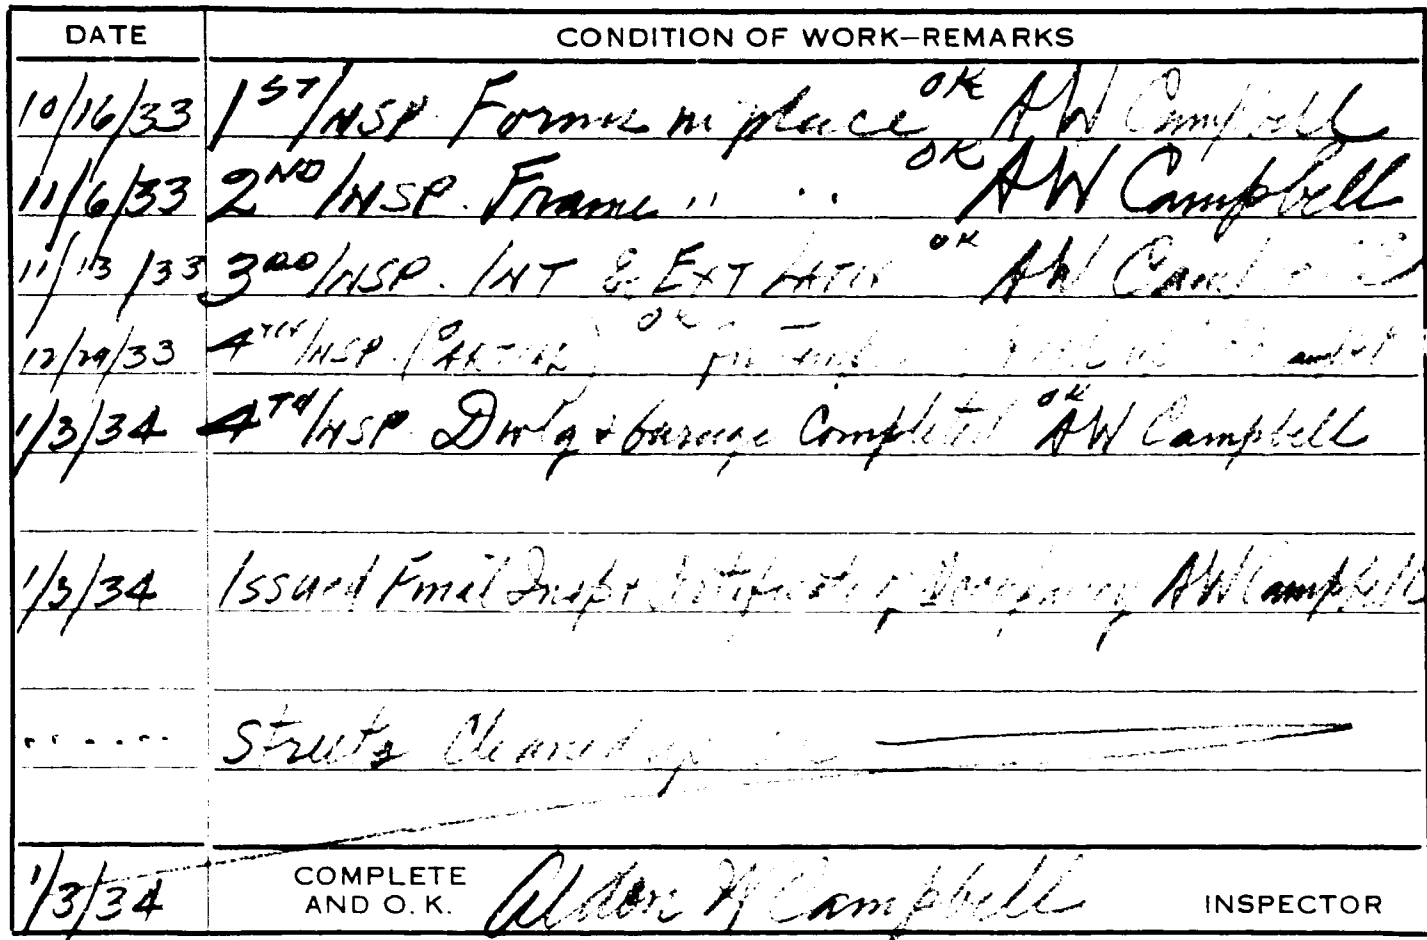 DATE CONDITION OF WORK—REMARKS
10/16/33 1ST INSP. Forms in place OK AW Campbell
11/6/33 2ND INSP. Frame " " OK AW Campbell
11/13/33 3RD INSP. INT & EXT LATH OK AW Campbell
12/29/33 4TH INSP. (PARTIAL) OK
1/3/34 4TH INSP. Dwlg & Garage Completed OK AW Campbell
1/3/34 Issued Final Insp & Certificate AW Campbell
Streets Cleaned up
1/3/34 COMPLETE AND O. K. Aldon W Campbell INSPECTOR